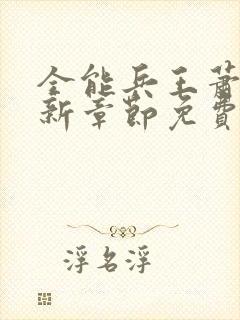 全能兵王萧
新章節免費
浮名浮